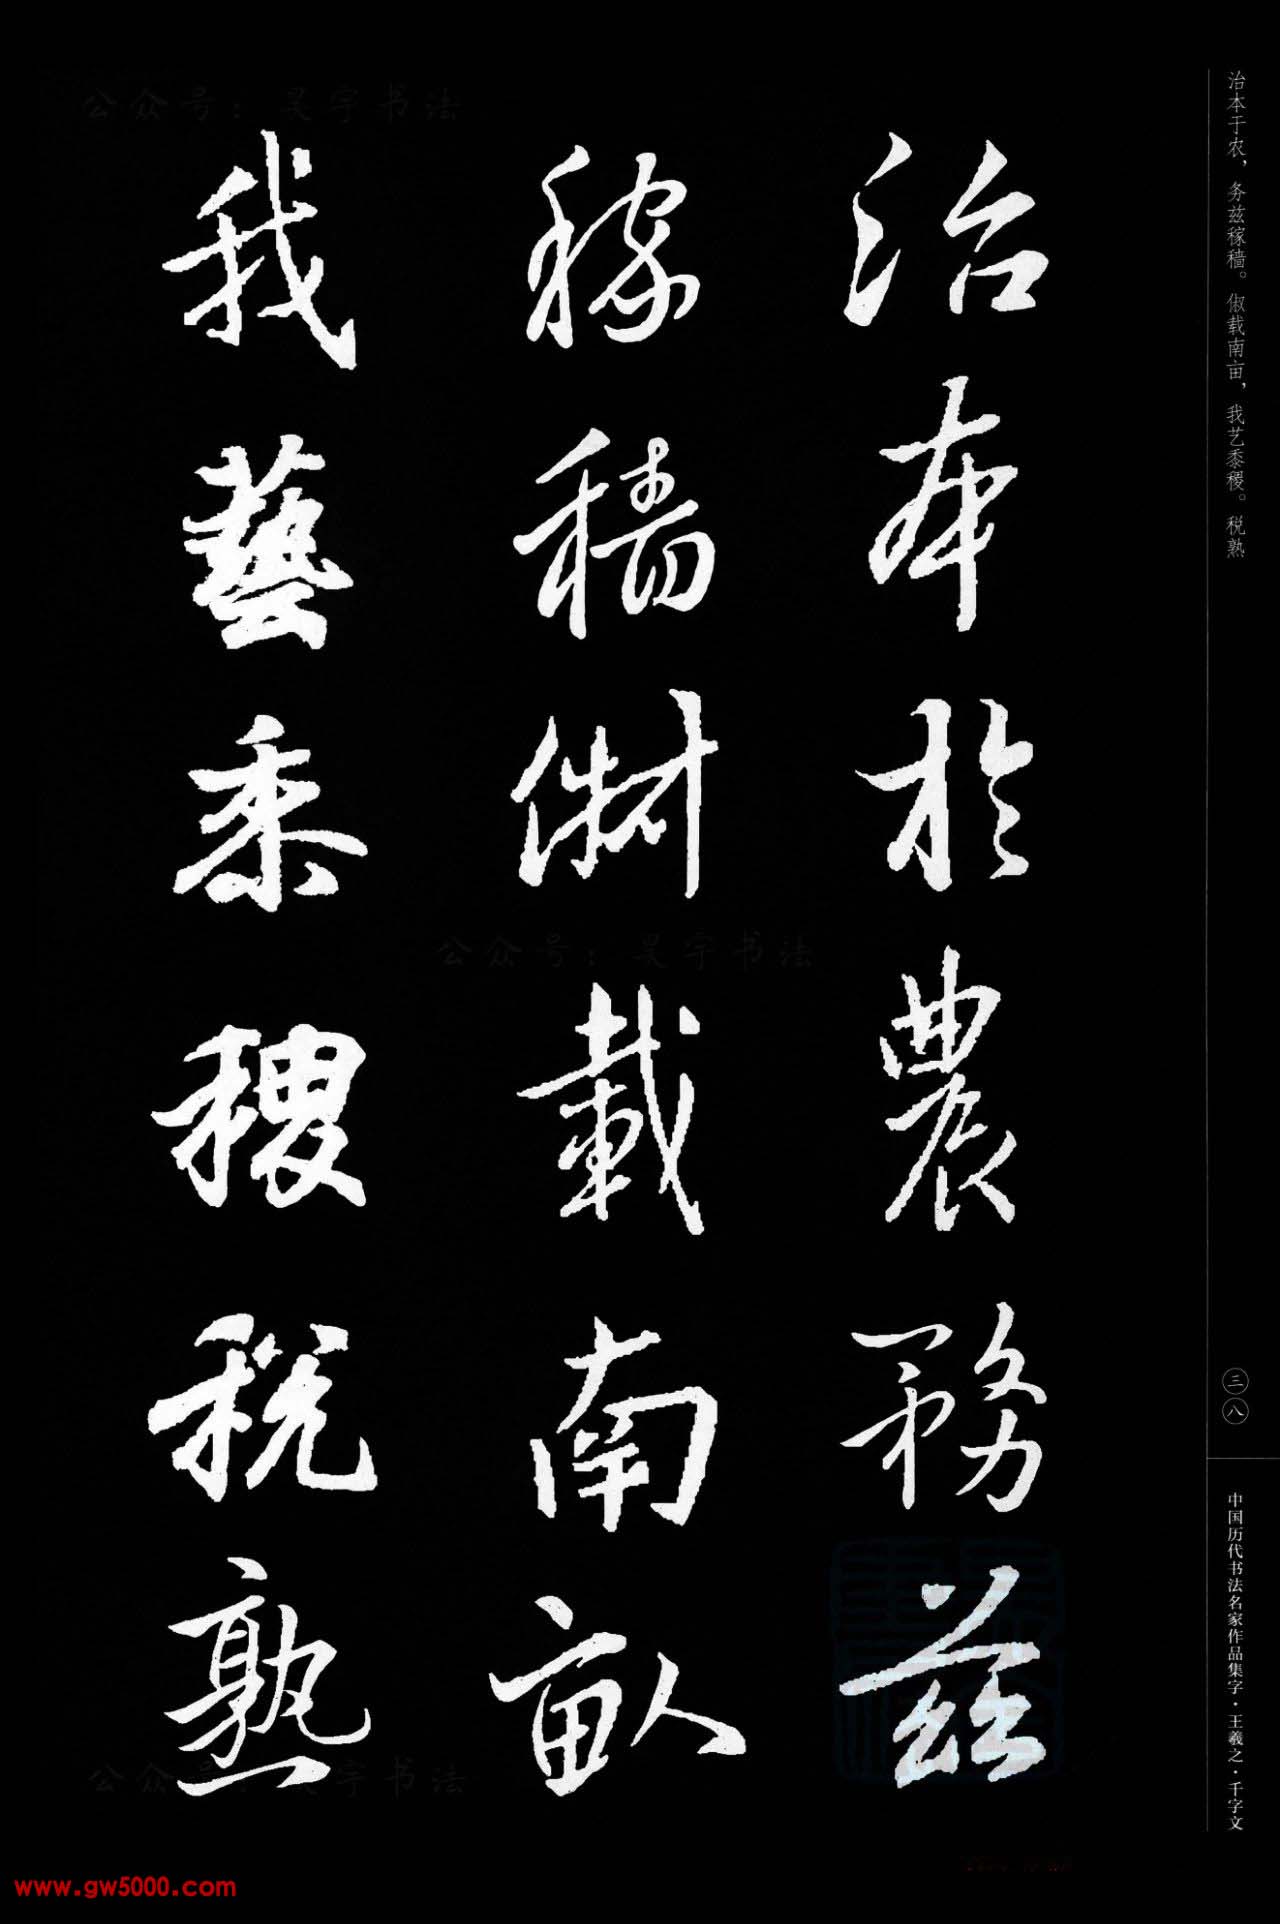 治本于农，务兹稼穑。俶载南亩，我艺黍稷。税熟
治本於農務茲
稼穡俶載南畝
我藝黍稷税熟
三八
中国历代书法名家作品集字·王羲之·千字文
公众号：昊宇书法
公众号：昊宇书法
公众号：昊宇书法
www.gw5000.com